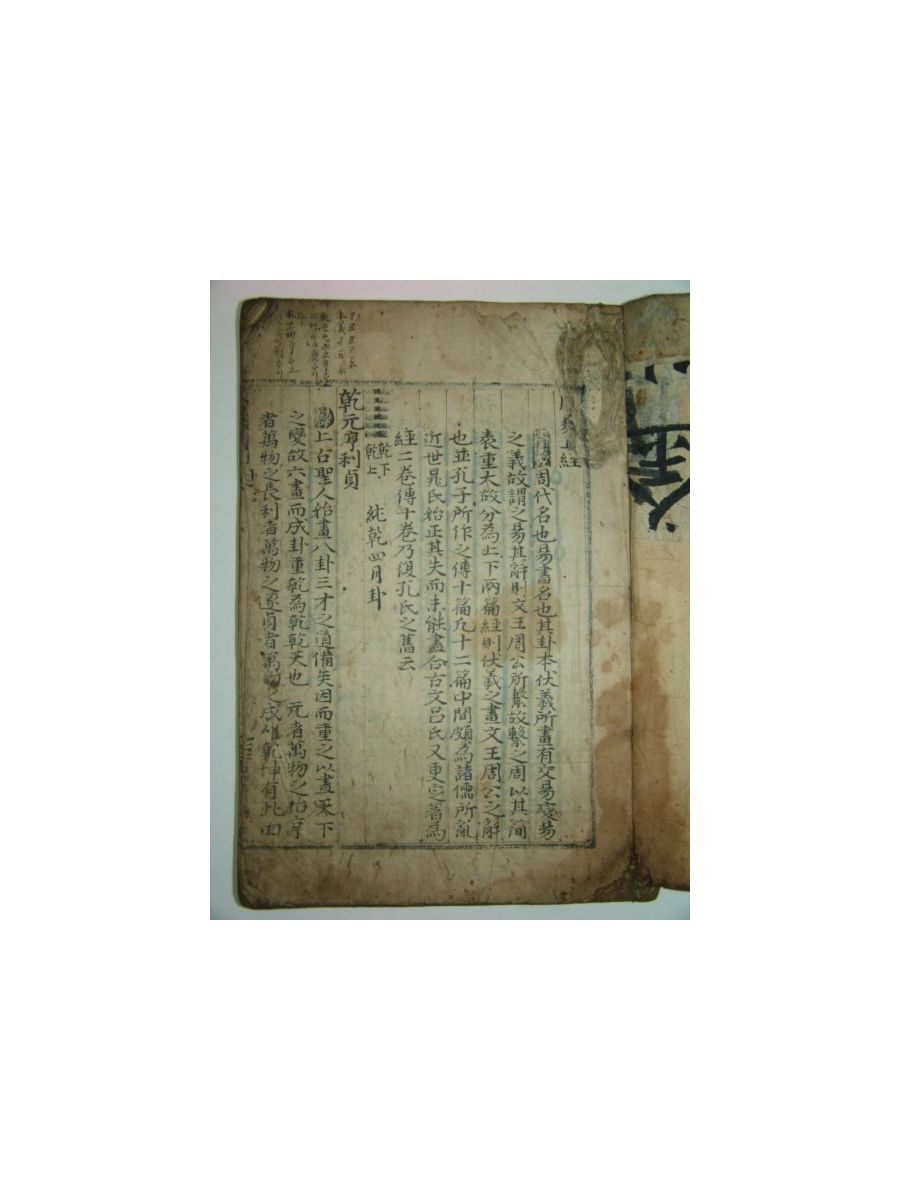 周易上經
周代名也易書名也其卦本伏羲所畫有交易變易
之義故謂之易其辭則文王周公所繫故繫之周以其簡
袠重大故分爲上下兩篇經則伏羲之畫文王周公之辭
也並孔子所作之傳十篇凡十二篇中間頗爲諸儒所亂
近世晁氏始正其失而未能盡合古文呂氏又更定著爲
經二卷傳十卷乃復孔氏之舊云
乾下
乾上
純乾四月卦
乾元亨利貞
上古聖人始畫八卦三才之道備矣因而重之以盡天下
之變故六畫而成卦重乾爲乾乾天也 元者萬物之始亨
者萬物之長利者萬物之遂貞者萬物之成唯乾坤有此四